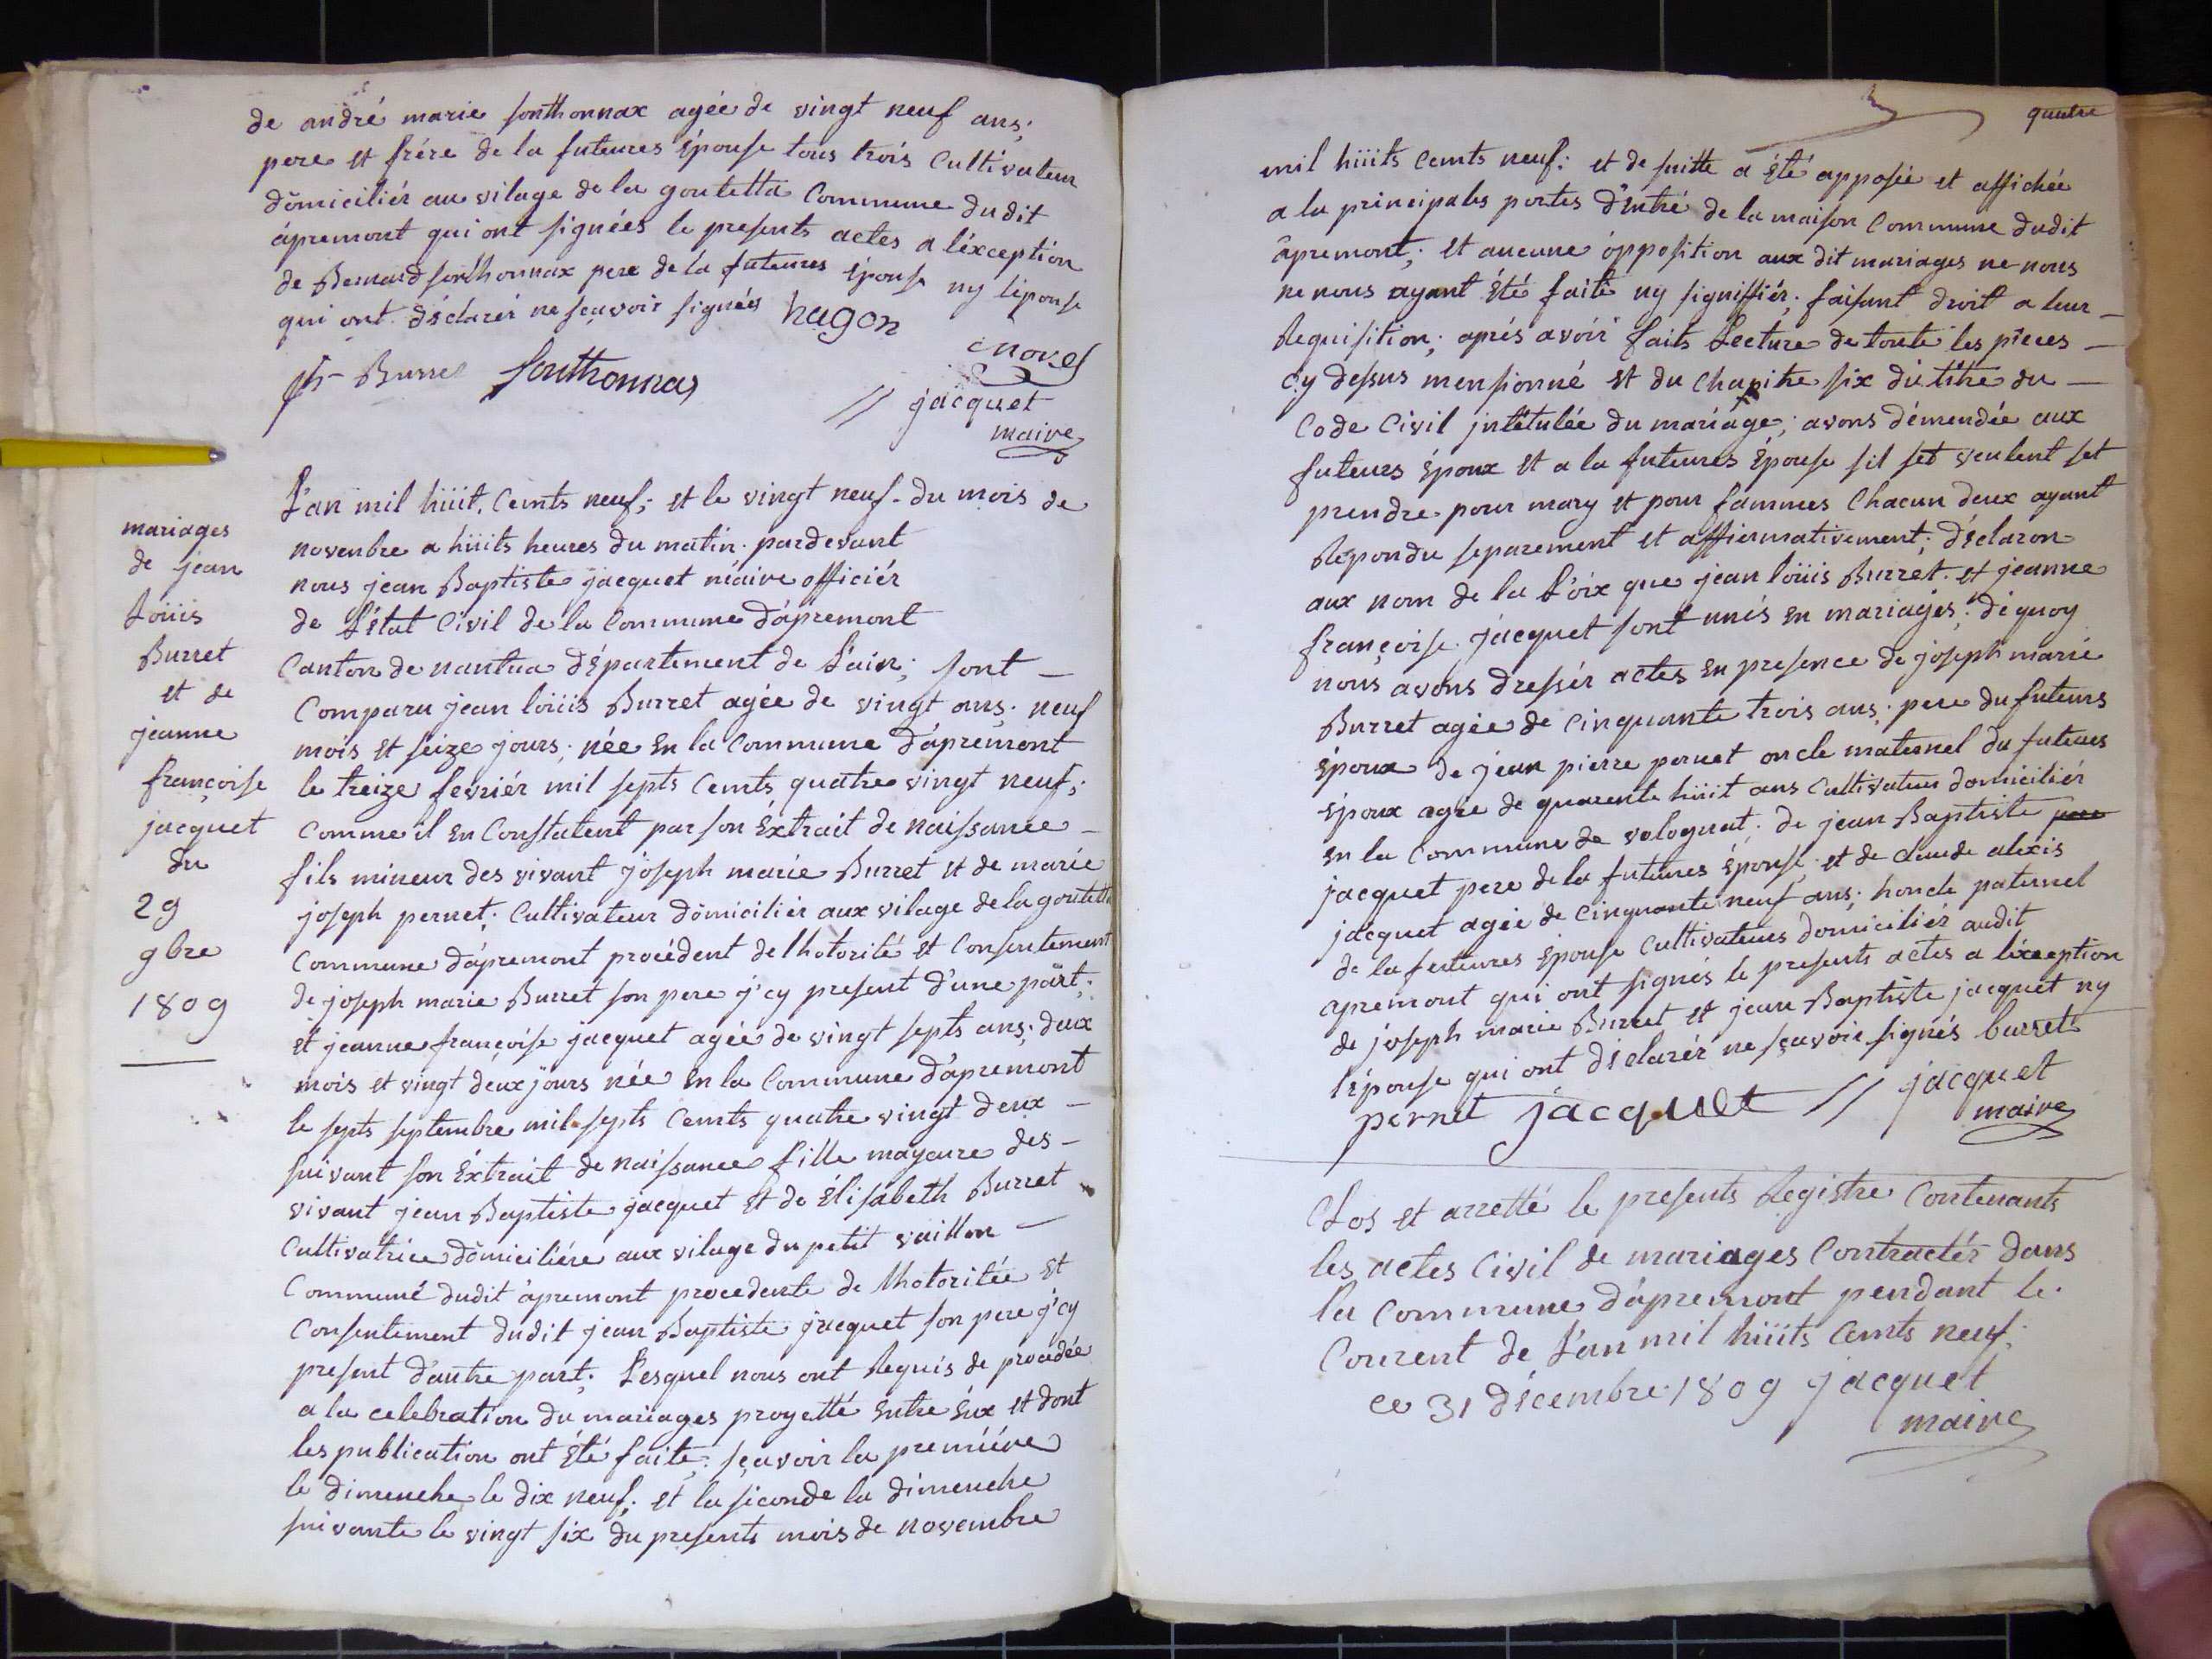 de andré marie sonthonnax agée de vingt neuf ans;
pere et frére de la futeures Épouse tous trois Cultivateur
domiciliér au vilage de la gouletta Commune dudit
ápremont qui ont signées le presents actes a léxception
de Bernard sonthonnax pere de la futeures Épouse ny lépouse
qui ont déclarér ne sçavoir signées hugon
Burret Sonthonnax
jacquet
maire
mariages
de jean
Loüis
Burret
et de
jeanne
françoise
jacquet
du
29
9bre
1809
L'an mil hüit. Cents neuf; et le vingt neuf. du mois de
novenbre a hüits heures du matin. pardevant
nous jean Baptiste jacquet maire officiér
de L'état Civil de la Commune dápremont
Canton de nantua département de L'ain; sont —
Comparu jean loüis Burret agée de vingt ans. neuf
mois et seize jours; née en la Commune dápremont
le treize fevriér mil septs Cents quatre vingt neuf;
Comme il en Constatent par son Éxtrait de naissance —
fils mineur des vivant joseph marie Burret et de marie
joseph pernet; Cultivateur domiciliér aux vilage de la gouletta
Commune dápremont procédent de lhotorité et Consentement
de joseph marie Burret son pere j'cy present d'une part;
et jeanne françoise jacquet agée de vingt septs ans; deux
mois et vingt deux jours née en la Commune dápremont
le septs septembre mil septs Cents quatre vingt deux —
suivant son Éxtrait de naissance fille mayeure des —
vivant jean Baptiste jacquet et de Élisabeth Burret
Cultivatrice domiciliére aux vilage du petit vaillon —
Commune dudit ápremont procedente de lhotoritée et
Consentement dudit jean Baptiste jacquet son pere j'cy
present dautre part; Lesquel nous ont Requis de procédée
a la celebration du mariages proyetté Entre Éux et dont
les publication ont Été faite; sçavoir la premiére
le dimenche le dix neuf; et la séconde la dimenche
suivante le vingt six du presents mois de novembre
quatre
mil hüits Cents neuf; et de suitte a Été apposée et affichée
a la principales portes d'Entré de la maison Commune dudit
ápremont; et aucune ópposition aux dit mariages ne nous
ne nous ayant Été faite ny signiffiér; faisant droit a leur —
Requisition; aprés avoir faits Lecture de toute les pieces —
cy dessus mensionné et du Chapitre six du titre du —
Code Civil jntitulée du mariage; avons démendée aux
futeurs Époux et a la futeures Épouse sil set veulent set
prendre pour mary et pour fammes Chacun deux ayant
Répondu separement et affiermativement; déclaron
aux nom de la Loix que jean loüis Burret. et jeanne
françoise jacquet sont unis en mariages; de quoy
nous avons dressér actes en presence de joseph marie
Burret agée de Cinquante trois ans; pere du futeurs
époux de jean pierre pernet oncle maternel du futeures
époux agée de quarente hüit ans Cultivateur domiciliér
en la Commune de volognat; de jean Baptiste pere
jacquet pere de la futeures Épouse; et de claude alexis
jacquet agée de Cinquante neuf ans; honcle paternel
de la feuteures Épouse Cultivateurs domiciliér audit
apremont qui ont signés le presents actes a léxception
de joseph marie Burret et jean Baptiste jacquet ny
lépouse qui ont déclarér ne sçavoir signés burret
pernet jacquet // jacquet
maire
Clos et arretté le presents Registre Contenants
les actes Civil de mariages Contractér dans
la Commune dápremont pendant le
Courent de L'an mil hüits Cents neuf;
ce 31 décembre 1809 jacquet
maire